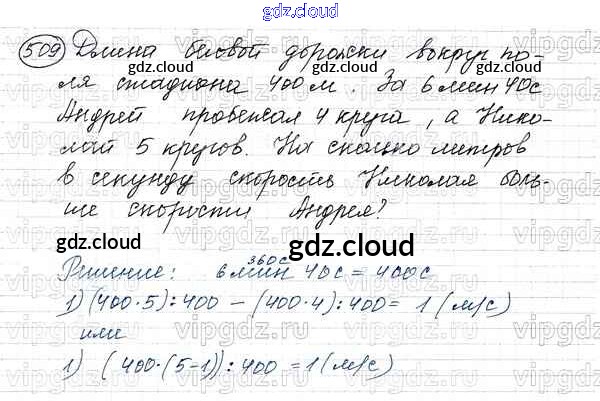 gdz.cloud
509 Длина беговой дорожки вокруг по-
gdz.cloud gdz.cloud
ля стадиона 400 м. За 6 мин 40 с
Андрей пробежал 4 круга, а Нико-
gdz.cloud gdz.cloud
лай 5 кругов. На сколько метров
в секунду скорость Николая боль-
ше скорости Андрея?
gdz.cloud
gdz.cloud
360с
Решение: 6 мин 40с = 400с
1) (400·5):400 - (400·4):400 = 1 (м/с)
или
1) (400·(5-1)):400 = 1 (м/с)